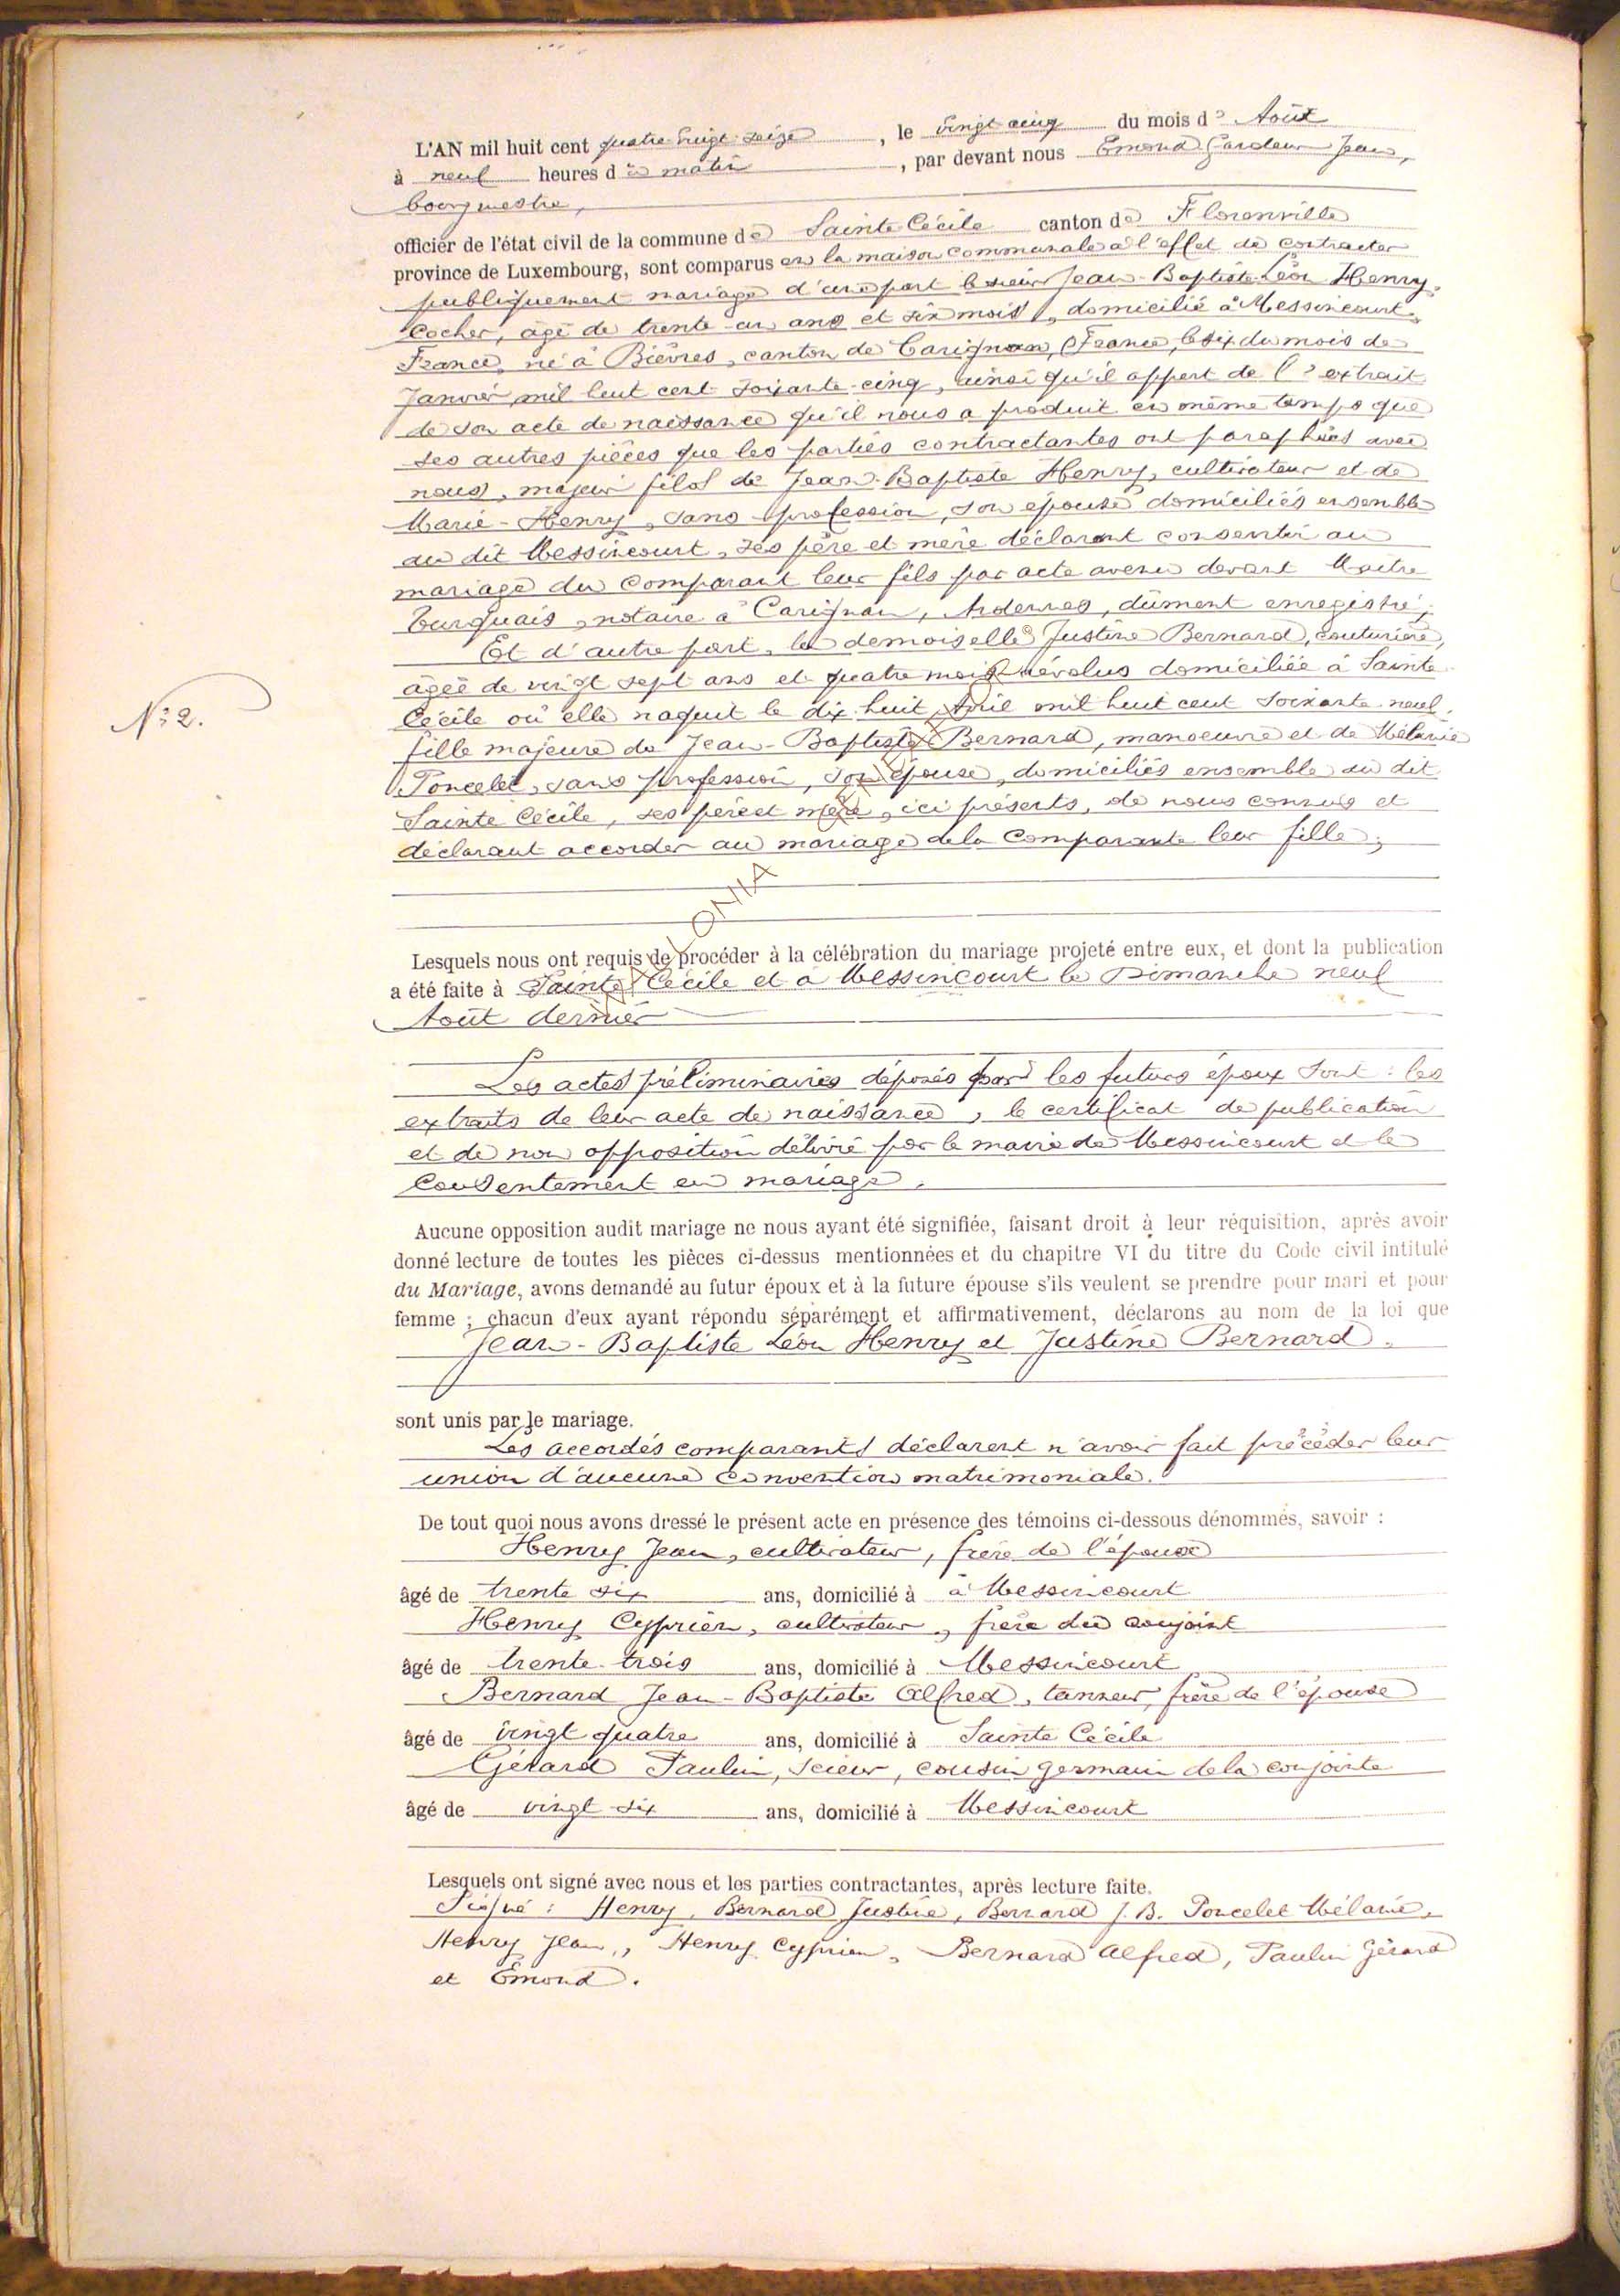 L'AN mil huit cent quatre vingt seize, le vingt cinq du mois d'Août
à neuf heures du matin, par devant nous Emond Jean,
bourgmestre,
officier de l'état civil de la commune de Sainte Cécile canton de Florenville
province de Luxembourg, sont comparus en la maison communale à l'effet de contracter
publiquement mariage d'une part le sieur Jean-Baptiste Léon Henry,
Cocher, âgé de trente-un ans et six mois, domicilié à Messincourt,
France, né à Bièvres, canton de Carignan, France, le six du mois de
Janvier mil huit cent soixante-cinq, ainsi qu'il appert de l'extrait
de son acte de naissance qu'il nous a produit en même temps que
ses autres pièces que les parties contractantes ont paraphées avec
nous, majeur fils de Jean-Baptiste Henry, cultivateur et de
Marie-Henry, sans profession, son épouse domiciliés ensemble
au dit Messincourt, ses père et mère déclarant consentir au
mariage du comparant leur fils par acte avenu devant Maître
Turquais, notaire à Carignan, Ardennes, dûment enregistré;
Et d'autre part, la demoiselle Justine Bernard, couturière,
âgée de vingt sept ans et quatre mois révolus domiciliée à Sainte
Cécile où elle naquit le dix-huit Avril mil huit cent soixante-neuf,
N° 2.
fille majeure de Jean-Baptiste Bernard, manoeuvre et de Mélanie
Poncelet, sans profession, son épouse, domiciliés ensemble au dit
Sainte Cécile, ses père et mère, ici présents, de nous connus et
déclarant accorder au mariage de la comparante leur fille;
Lesquels nous ont requis de procéder à la célébration du mariage projeté entre eux, et dont la publication
a été faite à Sainte Cécile et à Messincourt le Dimanche neuf
Août dernier
Les actes préliminaires déposés par les futurs époux sont: les
extraits de leur acte de naissance, le certificat de publication
et de non opposition délivré par le maire de Messincourt et le
Consentement en mariage.
Aucune opposition audit mariage ne nous ayant été signifiée, faisant droit à leur réquisition, après avoir
donné lecture de toutes les pièces ci-dessus mentionnées et du chapitre VI du titre du Code civil intitulé
du Mariage, avons demandé au futur époux et à la future épouse s'ils veulent se prendre pour mari et pour
femme ; chacun d'eux ayant répondu séparément et affirmativement, déclarons au nom de la loi que
Jean-Baptiste Léon Henry et Justine Bernard.
sont unis par le mariage.
Les accordés comparants déclarent n'avoir fait précéder leur
union d'aucune convention matrimoniale.
De tout quoi nous avons dressé le présent acte en présence des témoins ci-dessous dénommés, savoir :
Henry Jean, cultivateur, frère de l'époux
âgé de trente six ans, domicilié à à Messincourt
Henry Cyprien, cultivateur, frère du conjoint
âgé de trente-trois ans, domicilié à Messincourt
Bernard Jean-Baptiste Alfred, tanneur, frère de l'épouse
âgé de vingt quatre ans, domicilié à Sainte Cécile
Gérard Paulin, scieur, cousin germain de la conjointe
âgé de vingt-six ans, domicilié à Messincourt
Lesquels ont signé avec nous et les parties contractantes, après lecture faite.
Signé : Henry, Bernard Justine, Bernard J. B. Poncelet Mélanie,
Henry Jean, Henry Cyprien, Bernard Alfred, Paulin Gérard
et Emond.